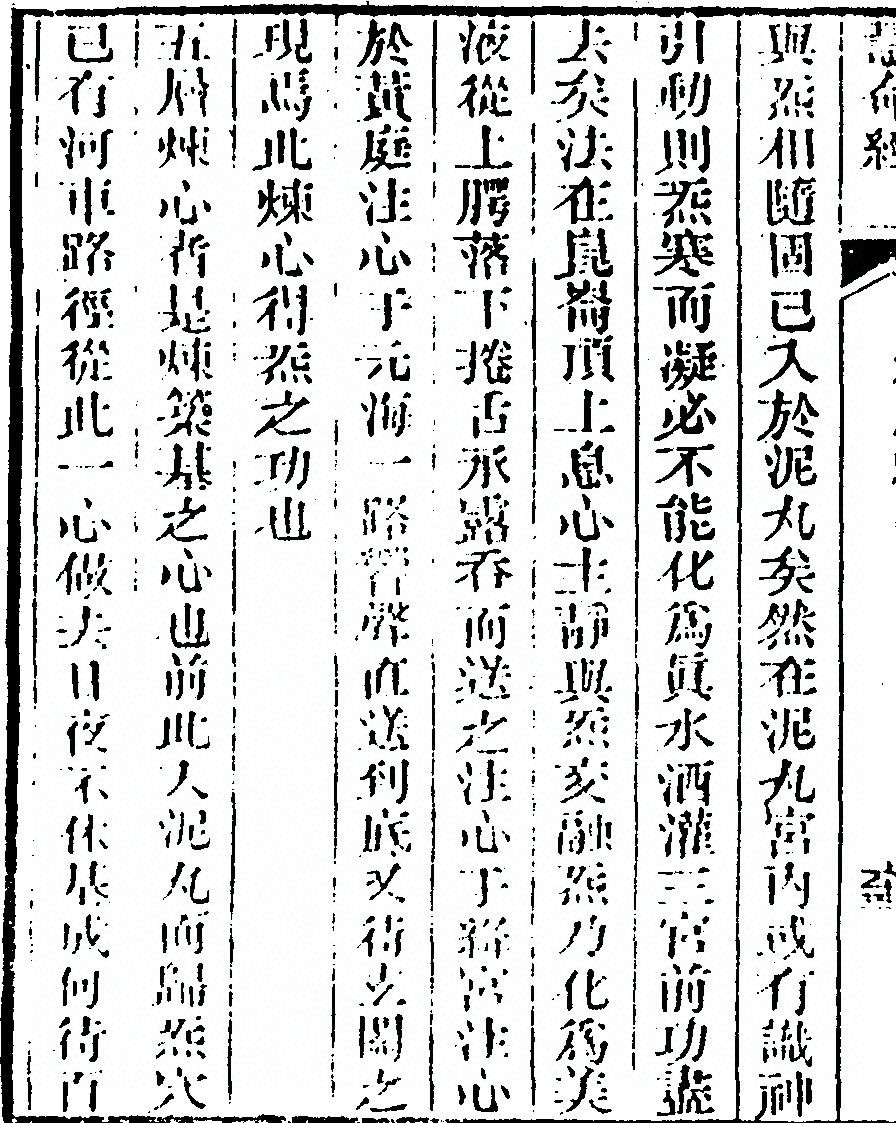 慧命經
與炁相隨固已入於泥丸矣然在泥丸宮內或有識神
引動則炁寒而凝必不能化爲眞水洒灌三宮前功盡
去矣法在崑崙頂上息心主靜與炁交融炁乃化爲美
液從上腭落下捲舌承露吞而送之注心于絳宮注心
於黃庭注心于元海一路響聲直送到底又待玄關之
現焉此煉心得炁之功也
五層煉心者是煉築基之心也前此入泥丸而歸炁穴
已有河車路徑從此一心做去日夜不休基成何待百